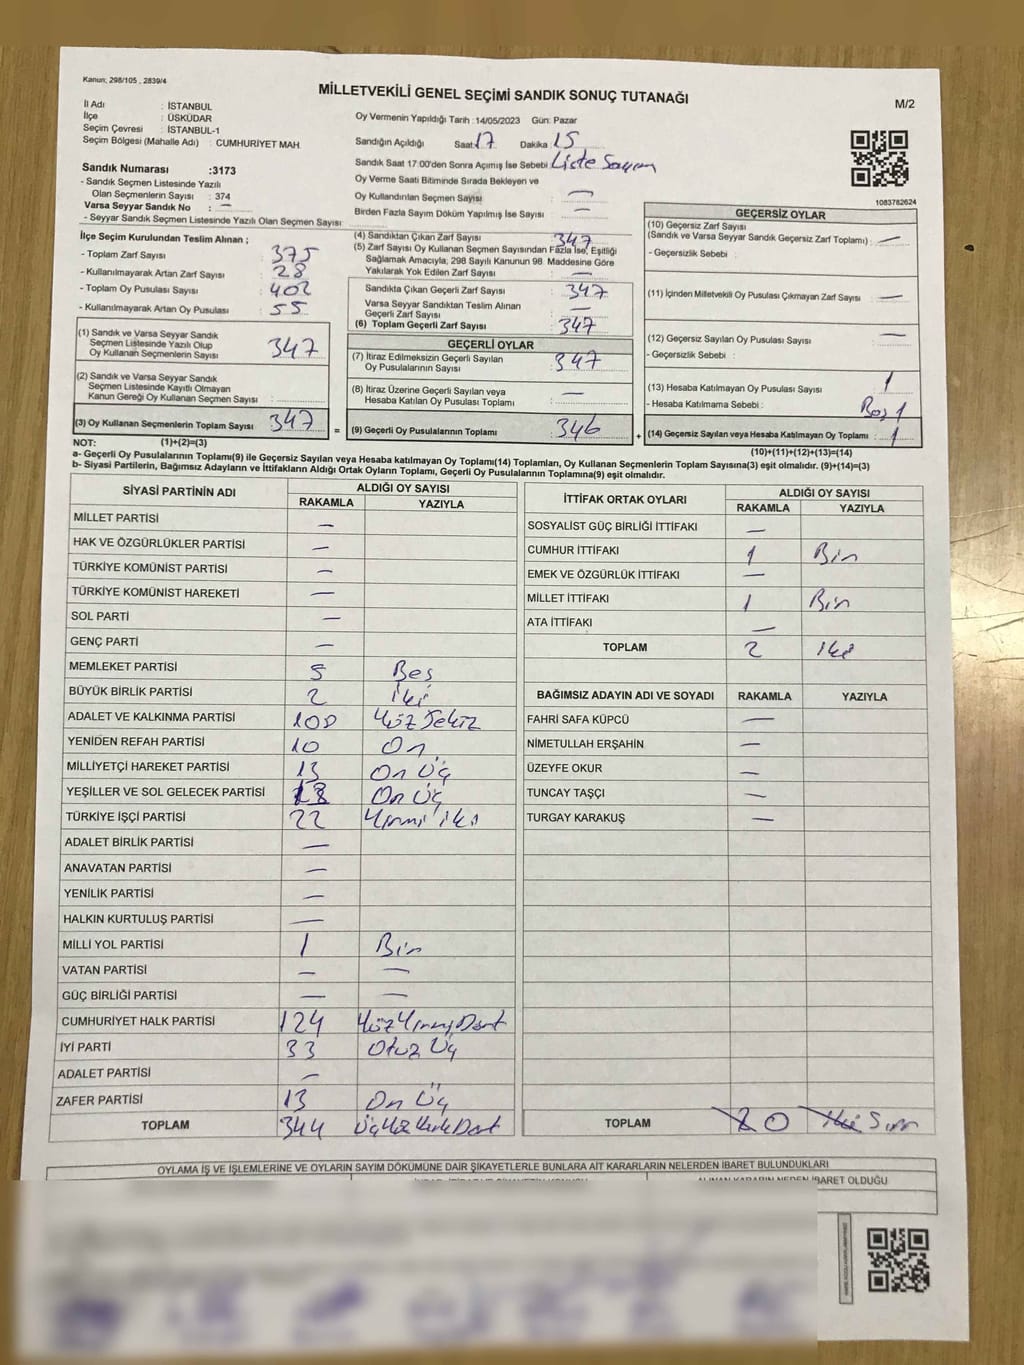 Kanun; 298/105 , 2839/4
MİLLETVEKİLİ GENEL SEÇİMİ SANDIK SONUÇ TUTANAĞI
M/2
İl Adı : İSTANBUL
İlçe : ÜSKÜDAR
Seçim Çevresi : İSTANBUL-1
Seçim Bölgesi (Mahalle Adı) : CUMHURİYET MAH.
Oy Vermenin Yapıldığı Tarih : 14/05/2023 Gün: Pazar
Sandığın Açıldığı Saat: 17 Dakika : 15
Sandık Saat 17:00'den Sonra Açımış İse Sebebi : Liste Sayım
Oy Verme Saati Bitiminde Sırada Bekleyen ve
Oy Kullandırılan Seçmen Sayısı : —
Birden Fazla Sayım Döküm Yapılmış İse Sayısı : —
Sandık Numarası :3173
- Sandık Seçmen Listesinde Yazılı
Olan Seçmenlerin Sayısı : 374
Varsa Seyyar Sandık No : —
- Seyyar Sandık Seçmen Listesinde Yazılı Olan Seçmen Sayısı :
1083782624
İlçe Seçim Kurulundan Teslim Alınan ;
- Toplam Zarf Sayısı : 375
- Kullanılmayarak Artan Zarf Sayısı : 28
- Toplam Oy Pusulası Sayısı : 402
- Kullanılmayarak Artan Oy Pusulası : 55
(1) Sandık ve Varsa Seyyar Sandık
Seçmen Listesinde Yazılı Olup
Oy Kullanan Seçmenlerin Sayısı : 347
(2) Sandık ve Varsa Seyyar Sandık
Seçmen Listesinde Kayıtlı Olmayan
Kanun Gereği Oy Kullanan Seçmen Sayısı :
(3) Oy Kullanan Seçmenlerin Toplam Sayısı : 347 =
(4) Sandıktan Çıkan Zarf Sayısı : 347
(5) Zarf Sayısı Oy Kullanan Seçmen Sayısından Fazla İse, Eşitliği
Sağlamak Amacıyla, 298 Sayılı Kanunun 98. Maddesine Göre
Yakılarak Yok Edilen Zarf Sayısı : —
Sandıkta Çıkan Geçerli Zarf Sayısı : 347
Varsa Seyyar Sandıktan Teslim Alınan
Geçerli Zarf Sayısı : —
(6) Toplam Geçerli Zarf Sayısı : 347
GEÇERLİ OYLAR
(7) İtiraz Edilmeksizin Geçerli Sayılan
Oy Pusulalarının Sayısı : 347
(8) İtiraz Üzerine Geçerli Sayılan veya
Hesaba Katılan Oy Pusulası Toplamı : —
(9) Geçerli Oy Pusulalarının Toplamı : 346 +
GEÇERSİZ OYLAR
(10) Geçersiz Zarf Sayısı
(Sandık ve Varsa Seyyar Sandık Geçersiz Zarf Toplamı) : —
- Geçersizlik Sebebi :
(11) İçinden Milletvekili Oy Pusulası Çıkmayan Zarf Sayısı : —
(12) Geçersiz Sayılan Oy Pusulası Sayısı : —
- Geçersizlik Sebebi :
(13) Hesaba Katılmayan Oy Pusulası Sayısı : 1
- Hesaba Katılmama Sebebi : Boş 1
(14) Geçersiz Sayılan veya Hesaba Katılmayan Oy Toplamı : 1
NOT: (1)+(2)=(3)
(10)+(11)+(12)+(13)=(14)
a- Geçerli Oy Pusulalarının Toplamı(9) ile Geçersiz Sayılan veya Hesaba katılmayan Oy Toplamı(14) Toplamları, Oy Kullanan Seçmenlerin Toplam Sayısına(3) eşit olmalıdır. (9)+(14)=(3)
b- Siyasi Partilerin, Bağımsız Adayların ve İttifakların Aldığı Ortak Oyların Toplamı, Geçerli Oy Pusulalarının Toplamına(9) eşit olmalıdır.
SİYASİ PARTİNİN ADI ALDIĞI OY SAYISI
RAKAMLA YAZIYLA
MİLLET PARTİSİ —
HAK VE ÖZGÜRLÜKLER PARTİSİ —
TÜRKİYE KOMÜNİST PARTİSİ —
TÜRKİYE KOMÜNİST HAREKETİ —
SOL PARTİ —
GENÇ PARTİ —
MEMLEKET PARTİSİ 5 Beş
BÜYÜK BİRLİK PARTİSİ 2 iki
ADALET VE KALKINMA PARTİSİ 108 Yüz Sekiz
YENİDEN REFAH PARTİSİ 10 On
MİLLİYETÇİ HAREKET PARTİSİ 13 On Üç
YEŞİLLER VE SOL GELECEK PARTİSİ 13 On Üç
TÜRKİYE İŞÇİ PARTİSİ 22 Yirmi iki
ADALET BİRLİK PARTİSİ —
ANAVATAN PARTİSİ —
YENİLİK PARTİSİ —
HALKIN KURTULUŞ PARTİSİ —
MİLLİ YOL PARTİSİ 1 Bir
VATAN PARTİSİ — —
GÜÇ BİRLİĞİ PARTİSİ — —
CUMHURİYET HALK PARTİSİ 124 Yüz Yirmi Dört
İYİ PARTİ 33 Otuz Üç
ADALET PARTİSİ —
ZAFER PARTİSİ 13 On Üç
TOPLAM 344 Üç Yüz Kırk Dört
İTTİFAK ORTAK OYLARI ALDIĞI OY SAYISI
RAKAMLA YAZIYLA
SOSYALİST GÜÇ BİRLİĞİ İTTİFAKI —
CUMHUR İTTİFAKI 1 Bir
EMEK VE ÖZGÜRLÜK İTTİFAKI —
MİLLET İTTİFAKI 1 Bir
ATA İTTİFAKI —
TOPLAM 2 iki
BAĞIMSIZ ADAYIN ADI VE SOYADI RAKAMLA YAZIYLA
FAHRİ SAFA KÜPCÜ —
NİMETULLAH ERŞAHİN —
ÜZEYFE OKUR —
TUNCAY TAŞÇI —
TURGAY KARAKUŞ —
TOPLAM 2 0 iki Sıfır
OYLAMA İŞ VE İŞLEMLERİNE VE OYLARIN SAYIM DÖKÜMÜNE DAİR ŞİKAYETLERLE BUNLARA AİT KARARLARIN NELERDEN İBARET BULUNDUKLARI
ALINAN KARARIN NEDEN İBARET OLDUĞU